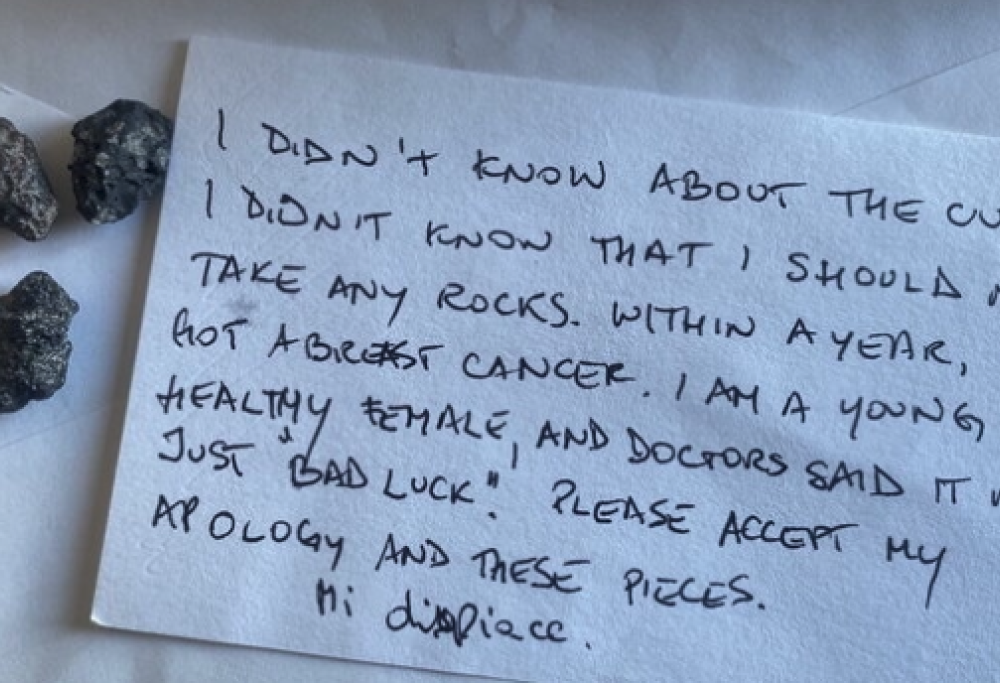 I DIDN'T KNOW ABOUT THE CU
I DIDN'T KNOW THAT I SHOULD
TAKE ANY ROCKS. WITHIN A YEAR,
GOT A BREAST CANCER. I AM A YOUNG,
HEALTHY FEMALE, AND DOCTORS SAID IT
JUST "BAD LUCK". PLEASE ACCEPT MY
APOLOGY AND THESE PIECES.
Mi dispiace.